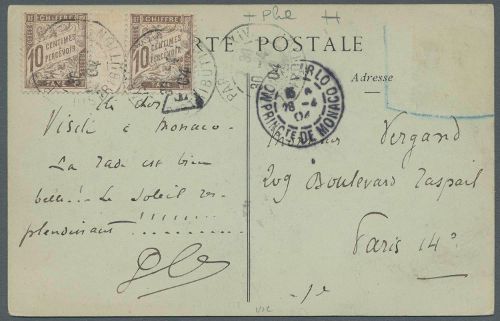 + Phe H
CHIFFRE
10 CENTIMES À PERCEVOIR
TAXE
CHIFFRE
10 CENTIMES À PERCEVOIR
CARTE POSTALE
Adresse
MONTE CARLO
16 - 4
04
PRINCTE DE MONACO
PARIS
T
Visité à Monaco.
La rade est bien
belle!- Le soleil res-
plendissant !!!!!!!!!!
Vergand
209 Boulevard Raspail
Paris 14e